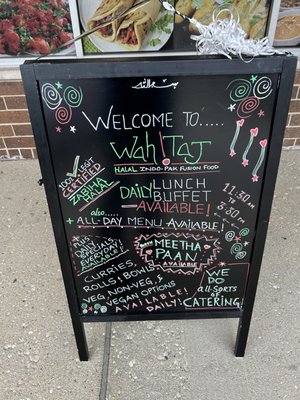 Welcome to.....
Wah! Taj
Halal Indo-Pak Fusion Food
100% Legit
Certified
Zabiha
Halal
Daily Lunch
Buffet
Available!
11:30 to
3:30 PM
also.....
+ All-Day Menu, Available!
Specials
Everyday
Available!
Meetha
Paan
Available
Curries,
Rolls! Bowls
Veg, Non-Veg, &
Vegan Options
Available! Daily!
We
Do
all-sorts of
Catering!